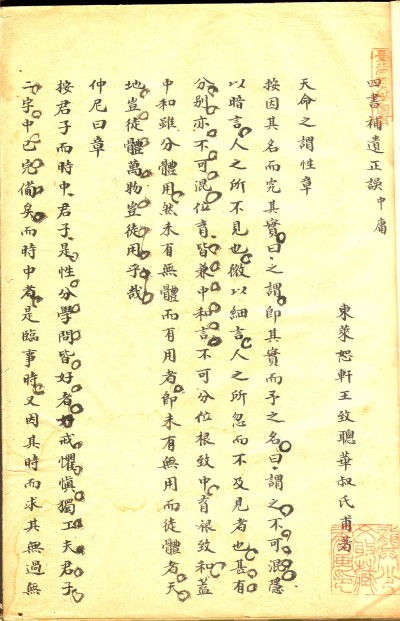 四書補遺正誤 中庸
東萊恕軒王致聰華叔氏甫著
天命之謂性章
按因其名而究其實曰之謂即其實而予之名曰謂之不可混隱
以暗言人之所不見也微以細言人之所忽而不及見者也甚有
分別亦不可混位育皆兼中和言不可分位根致中育根致和蓋
中和雖分體用然未有無體而有用者即未有無用而徒體者天
地豈徒體萬物豈徒用乎哉
仲尼曰章
按君子而時中君子是性分學問皆好者如戒懼慎獨工夫君子
二字中已完備矣而時中者是臨事時又因其時而求其無過無